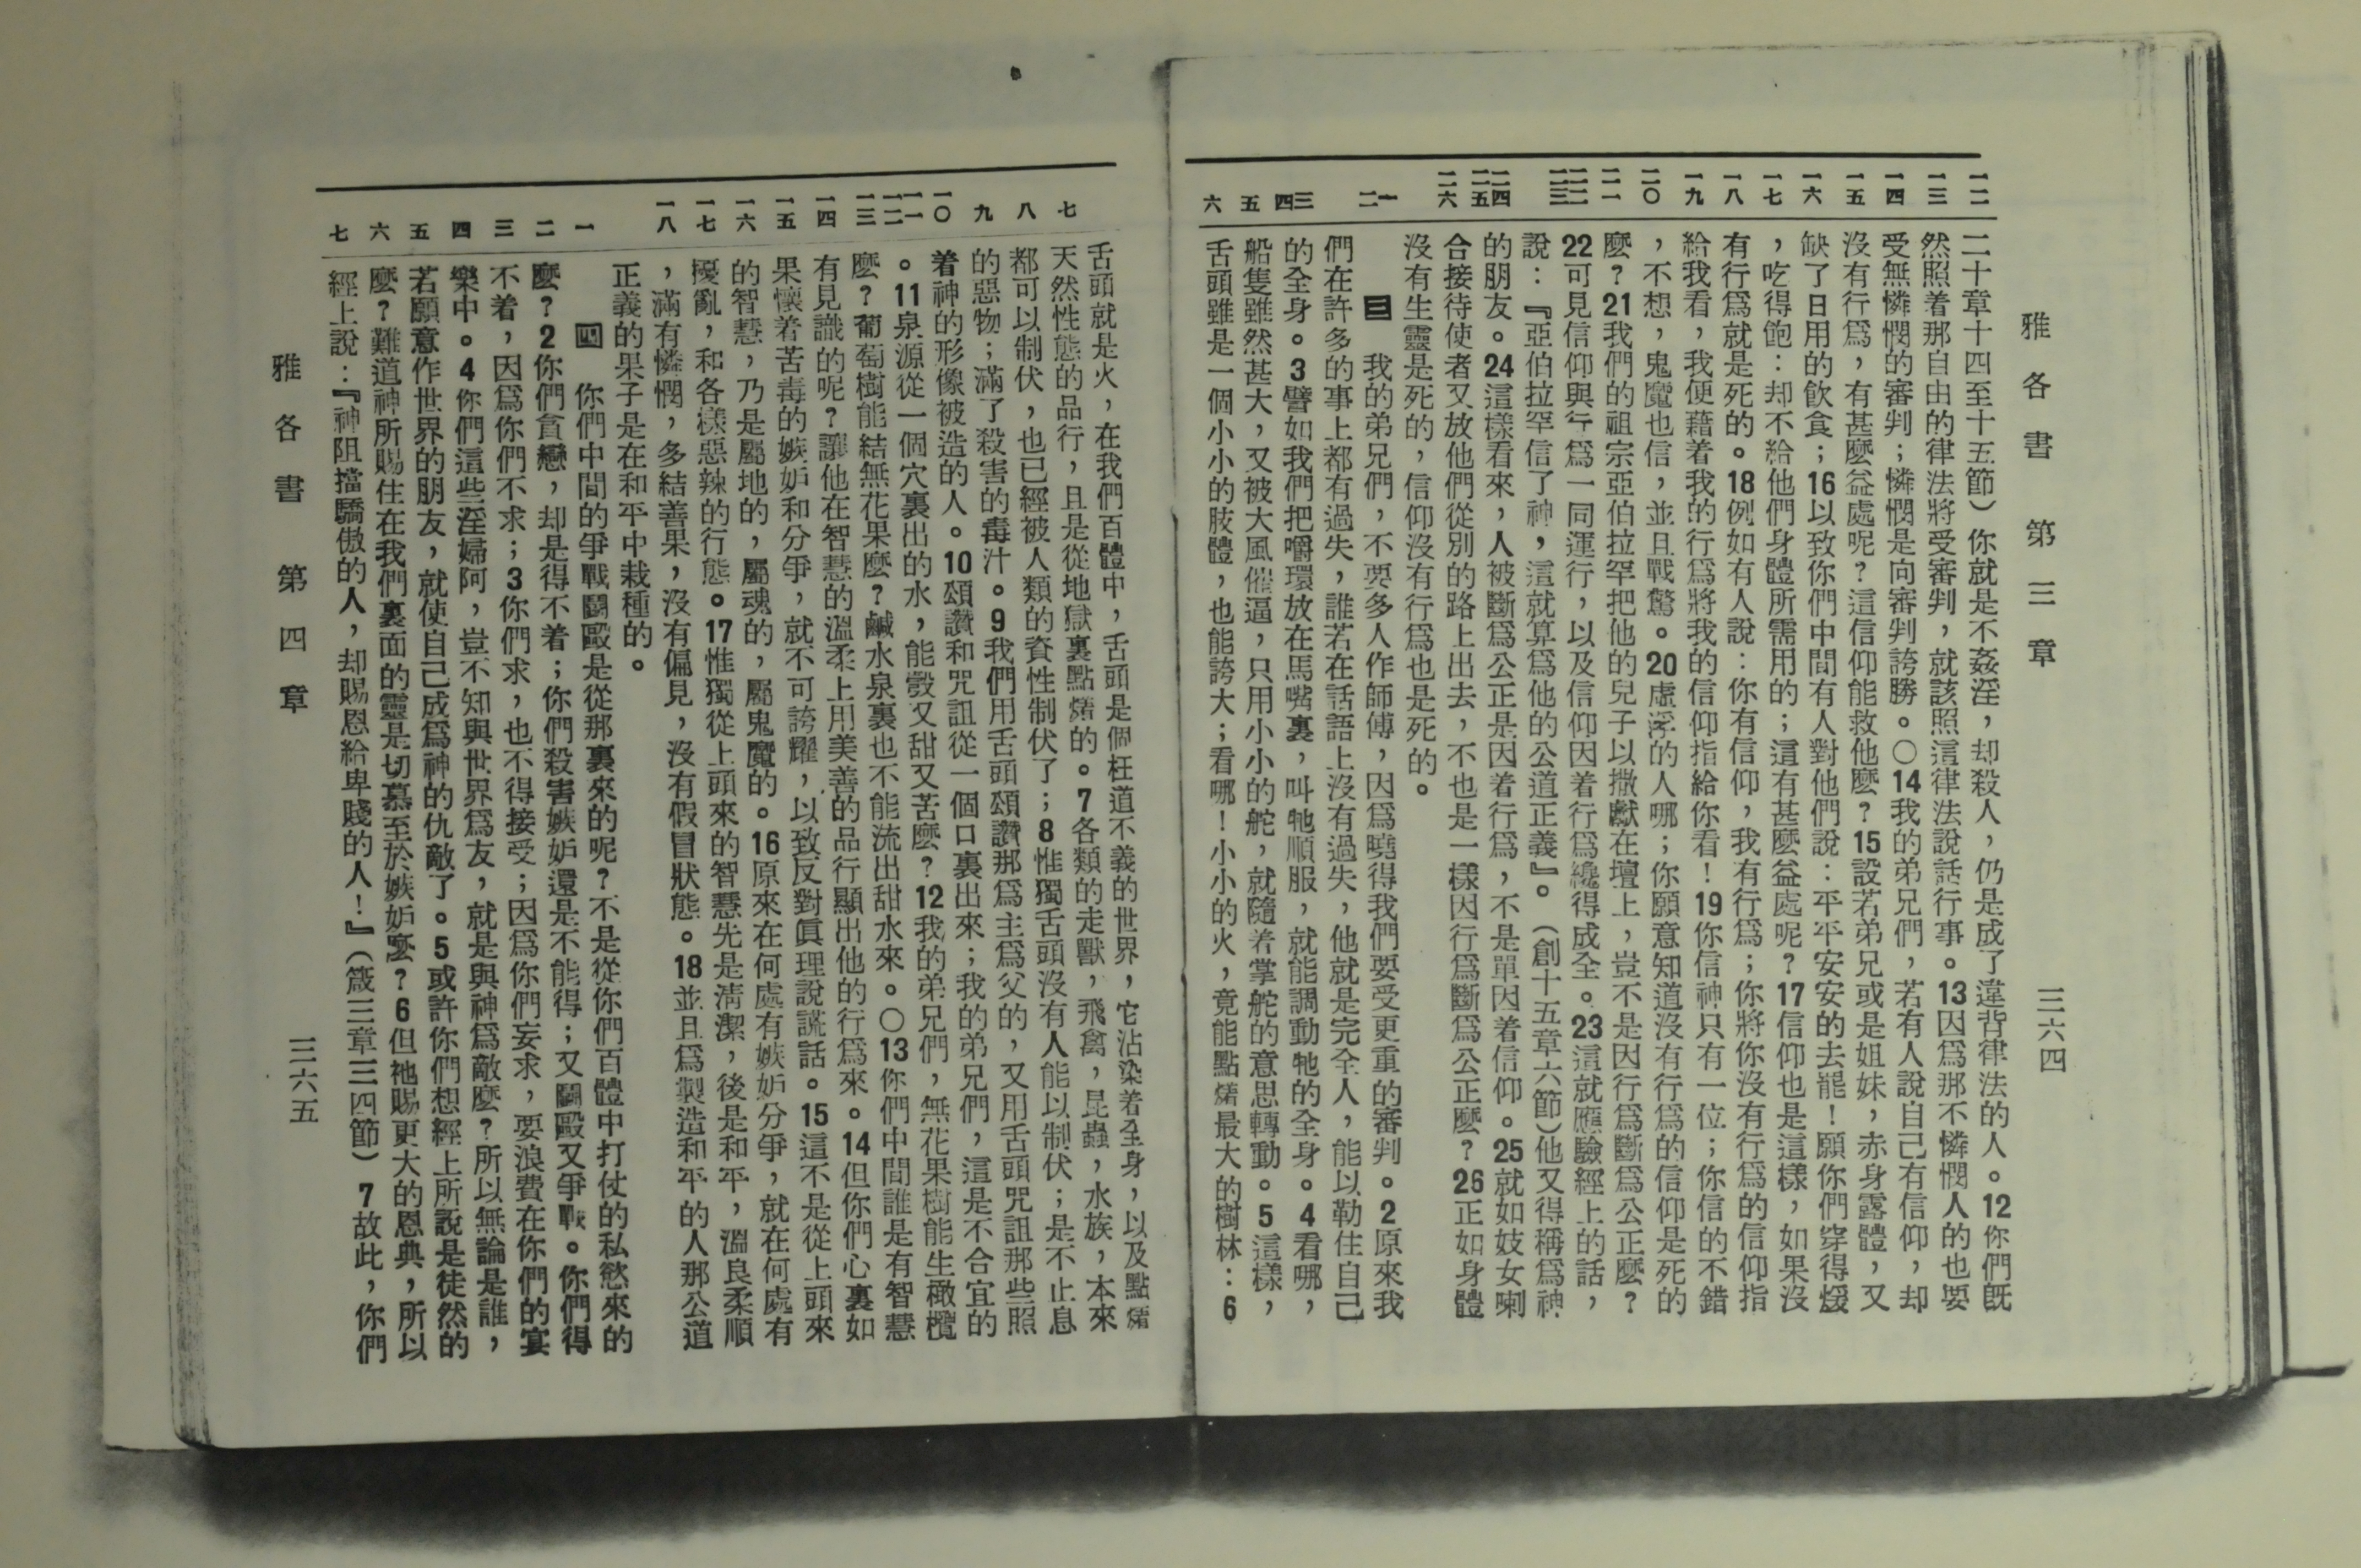 雅各書 第三章 三六四
一二 一三 一四 一五 一六 一七 一八 一九 二〇 二一 二二 二三 二四 二五 二六 一 二 三 四 五 六
二十章十四至十五節）你就是不姦淫，却殺人，仍是成了違背律法的人。12你們旣
然照着那自由的律法將受審判，就該照這律法說話行事。13因爲那不憐憫人的也要
受無憐憫的審判；憐憫是向審判誇勝。〇14我的弟兄們，若有人說自己有信仰，却
沒有行爲，有甚麼益處呢？這信仰能救他麼？15設若弟兄或是姐妹，赤身露體，又
缺了日用的飮食；16以致你們中間有人對他們說：平平安安的去罷！願你們穿得煖
，吃得飽：却不給他們身體所需用的；這有甚麼益處呢？17信仰也是這樣，如果沒
有行爲就是死的。18例如有人說：你有信仰，我有行爲；你將你沒有行爲的信仰指
給我看，我便藉着我的行爲將我的信仰指給你看！19你信神只有一位；你信的不錯
，不想，鬼魔也信，並且戰驚。20虛浮的人哪；你願意知道沒有行爲的信仰是死的
麼？21我們的祖宗亞伯拉罕把他的兒子以撒獻在壇上，豈不是因行爲斷爲公正麼？
22可見信仰與行爲一同運行，以及信仰因着行爲纔得成全。23這就應驗經上的話，
說：『亞伯拉罕信了神，這就算爲他的公道正義』。（創十五章六節）他又得稱爲神
的朋友。24這樣看來，人被斷爲公正是因着行爲，不是單因着信仰。25就如妓女喇
合接待使者又放他們從別的路上出去，不也是一樣因行爲斷爲公正麼？26正如身體
沒有生靈是死的，信仰沒有行爲也是死的。
三 我的弟兄們，不要多人作師傅，因爲曉得我們要受更重的審判。2原來我
們在許多的事上都有過失，誰若在話語上沒有過失，他就是完全人，能以勒住自己
的全身。3譬如我們把嚼環放在馬嘴裏，叫牠順服，就能調動牠的全身。4看哪，
船隻雖然甚大，又被大風催逼，只用小小的舵，就隨着掌舵的意思轉動。5這樣，
舌頭雖是一個小小的肢體，也能誇大；看哪！小小的火，竟能點燒最大的樹林：6
七 八 九 一〇 一一 一二 一三 一四 一五 一六 一七 一八 一 二 三 四 五 六 七
舌頭就是火，在我們百體中，舌頭是個枉道不義的世界，它沾染着全身，以及點燒
天然性態的品行，且是從地獄裏點燒的。7各類的走獸，飛禽，昆蟲，水族，本來
都可以制伏，也已經被人類的資性制伏了；8惟獨舌頭沒有人能以制伏；是不止息
的惡物；滿了殺害的毒汁。9我們用舌頭頌讚那爲主爲父的，又用舌頭咒詛那些照
着神的形像被造的人。10頌讚和咒詛從一個口裏出來；我的弟兄們，這是不合宜的
。11泉源從一個穴裏出的水，能彀又甜又苦麼？12我的弟兄們，無花果樹能生橄欖
麼？葡萄樹能結無花果麼？鹹水泉裏也不能流出甜水來。〇13你們中間誰是有智慧
有見識的呢？讓他在智慧的溫柔上用美善的品行顯出他的行爲來。14但你們心裏如
果懷着苦毒的嫉妒和分爭，就不可誇耀，以致反對眞理說謊話。15這不是從上頭來
的智慧，乃是屬地的，屬魂的，屬鬼魔的。16原來在何處有嫉妒分爭，就在何處有
擾亂，和各樣惡辣的行態。17惟獨從上頭來的智慧先是淸潔，後是和平，溫良柔順
，滿有憐憫，多結善果，沒有偏見，沒有假冒狀態。18並且爲製造和平的人那公道
正義的果子是在和平中栽種的。
四 你們中間的爭戰鬭毆是從那裏來的呢？不是從你們百體中打仗的私慾來的
麼？2你們貪戀，却是得不着；你們殺害嫉妒還是不能得；又鬭毆又爭戰。你們得
不着，因爲你們不求；3你們求，也不得接受；因爲你們妄求，要浪費在你們的宴
樂中。4你們這些淫婦阿，豈不知與世界爲友，就是與神爲敵麼？所以無論是誰，
若願意作世界的朋友，就使自己成爲神的仇敵了。5或許你們想經上所說是徒然的
麼？難道神所賜住在我們裏面的靈是切慕至於嫉妒麼？6但祂賜更大的恩典，所以
經上說：『神阻擋驕傲的人，却賜恩給卑賤的人！』（箴三章三四節）7故此，你們
雅各書 第四章 三六五